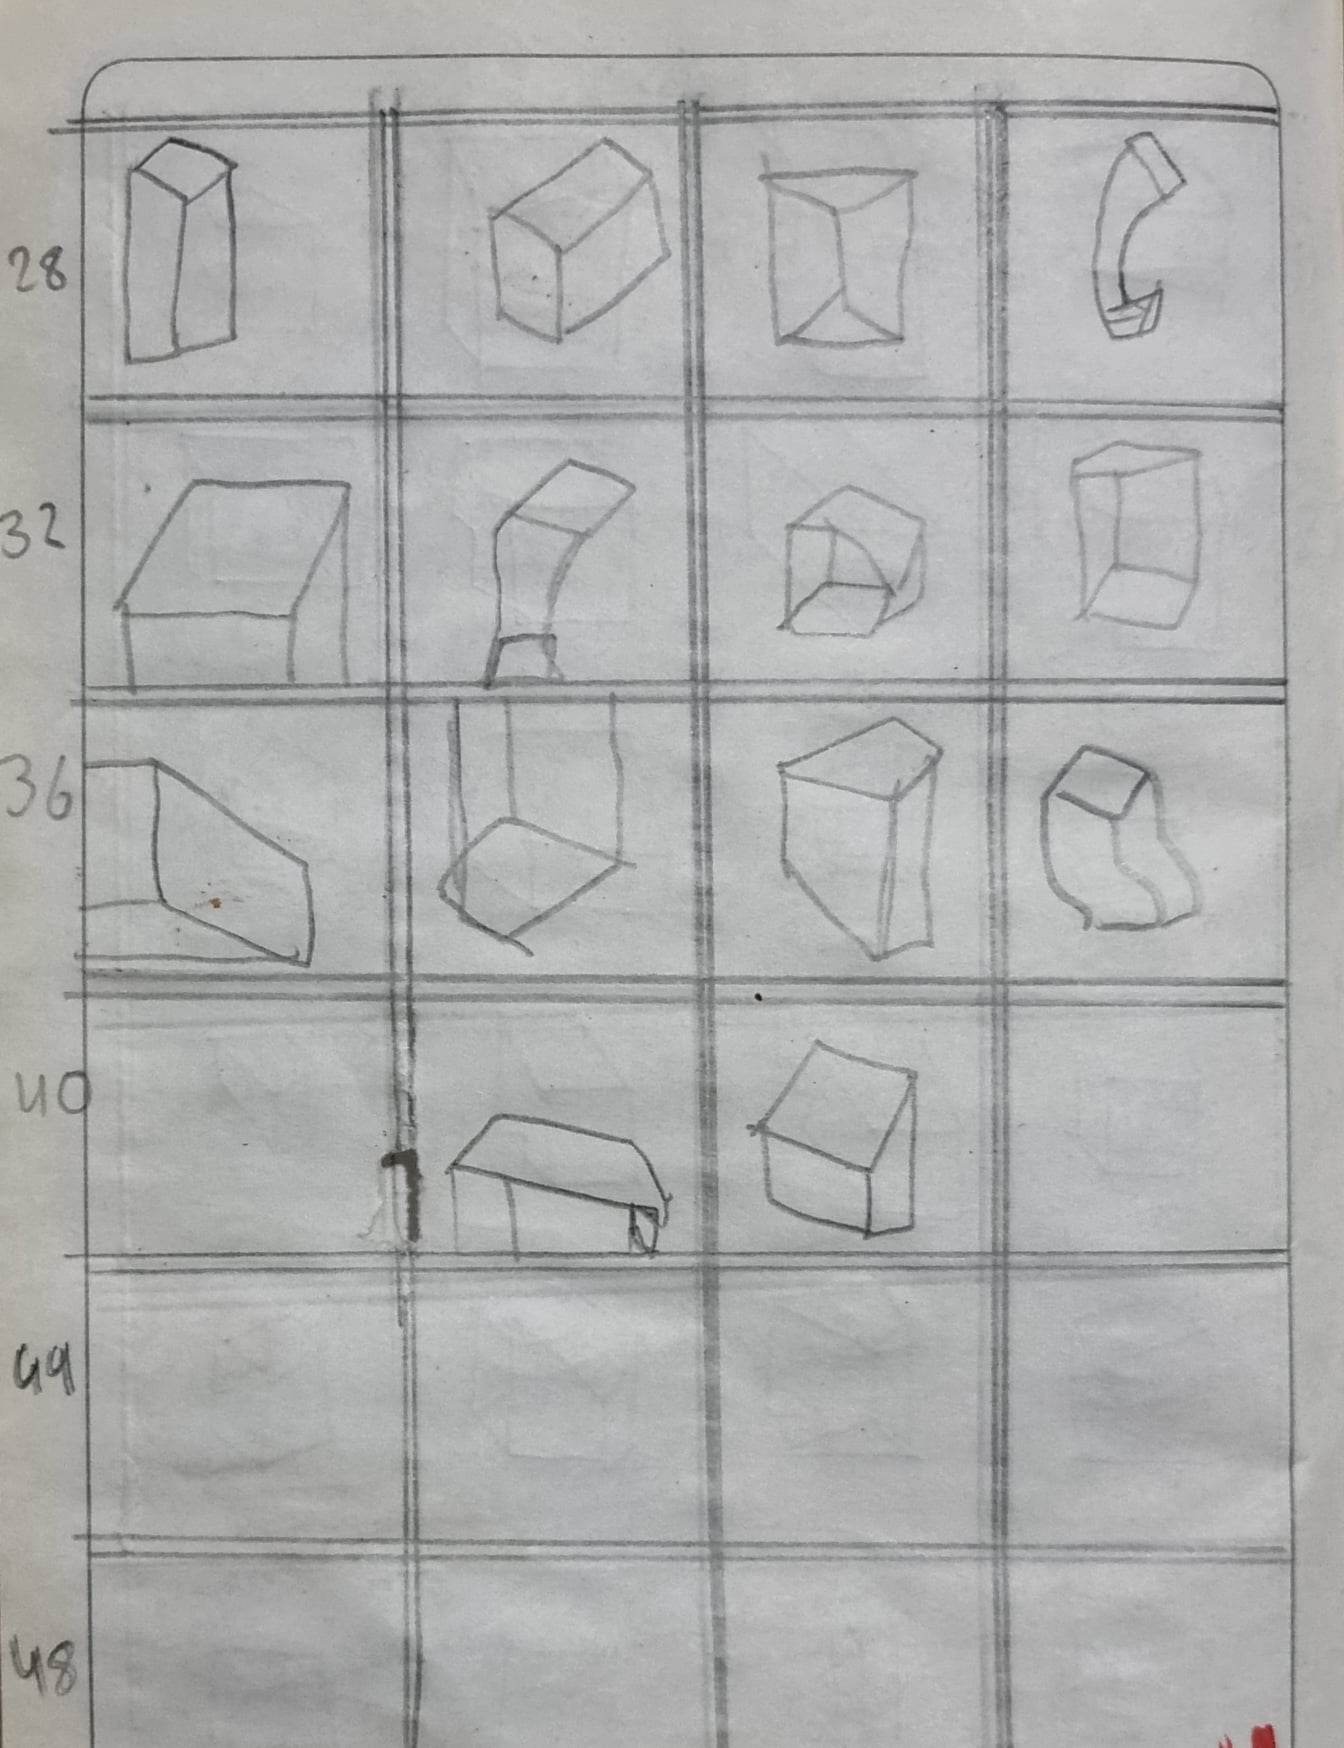 28
32
36
40
44
48